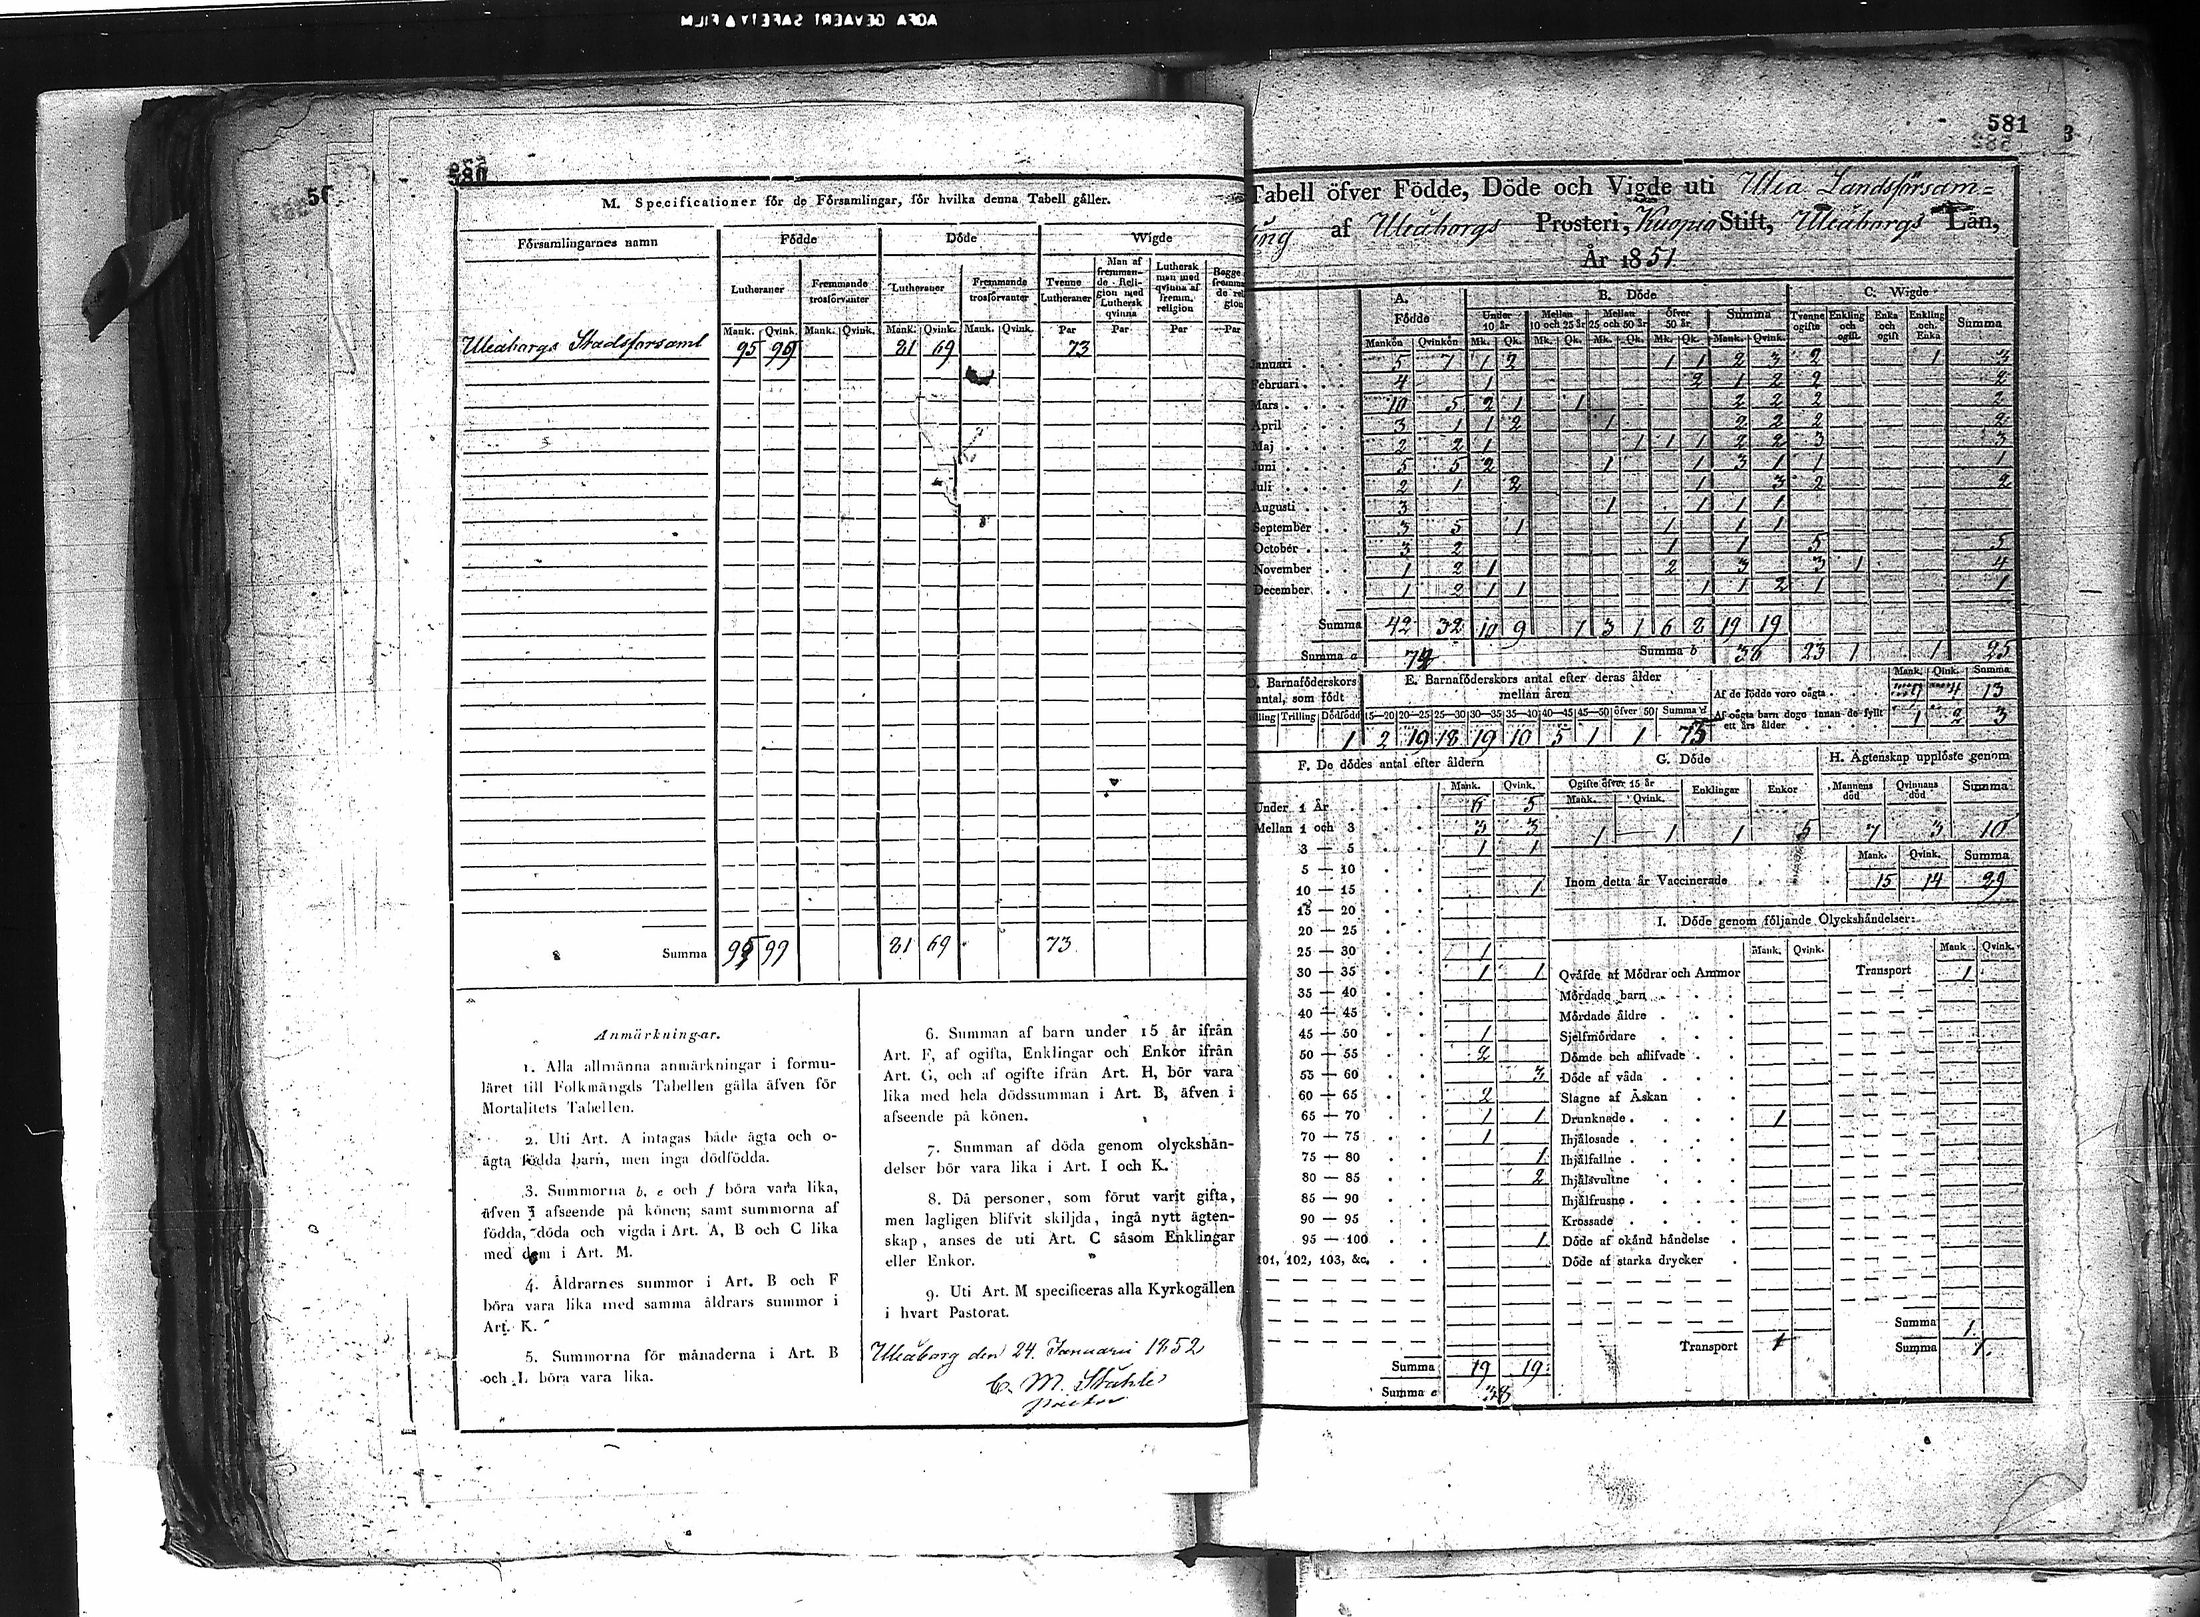 M. Specificationer för de Församlingar, för hvilka denna Tabell gäller.
Församlingarnes namn
Födde
Döde
Wigde
Lutheraner
Fremmande trosförvanter
Lutheraner
Fremmande trosförvanter
Tvenne Lutheraner
Man af fremmande Religion med Luthersk qvinna
Luthersk man med qvinna af fremm. religion
Mank. Qvink. Mank. Qvink. Mank. Qvink. Mank. Qvink. Par Par Par Par
Uleåborgs Stadsförsaml 95 99 81 69 73
Summa 95 99 81 69 73
Anmärkningar.
1. Alla allmänna anmärkningar i formu-
läret till Folkmängds Tabellen gälla äfven för
Mortalitets Tabellen.
2. Uti Art. A intagas både ägta och o-
ägta födda barn, men inga dödfödda.
3. Summorna b, e och f böra vara lika,
äfven i afseende på könen; samt summorna af
födda, döda och vigda i Art. A, B och C lika
med dem i Art. M.
4. Åldrarnes summor i Art. B och F
böra vara lika med samma åldrars summor i
Art. K.
5. Summorna för månaderna i Art. B
och L böra vara lika.
6. Summan af barn under 15 år ifrån
Art. F, af ogifta, Enklingar och Enkor ifrån
Art. G, och af ogifte ifrån Art. H, bör vara
lika med hela dödssumman i Art. B, äfven i
afseende på könen.
7. Summan af döda genom olyckshän-
delser bör vara lika i Art. I och K.
8. Då personer, som förut varit gifta,
men lagligen blifvit skiljda, ingå nytt ägten-
skap, anses de uti Art. C såsom Enklingar
eller Enkor.
9. Uti Art. M specificeras alla Kyrkogällen
i hvart Pastorat.
Uleåborg den 24. Januarii 1852
C. M. Ståhle
581
Tabell öfver Födde, Döde och Vigde uti Uleå Landsförsam=
ling af Uleåborgs Prosteri, Kuopio Stift, Uleåborgs Län,
År 1851
A. Födde
B. Döde
C. Wigde
Mankön Qvinkön
Under 10 år
Mellan 10 och 25 år
Mellan 25 och 50 år
Öfver 50 år
Summa
Tvenne ogifte
Enkling och ogift
Enka och ogift
Enkling och Enka
Summa
Mk. Qk. Mk. Qk. Mk. Qk. Mk. Qk. Mank. Qvink.
Januari 5 7 1 2 1 1 2 3 2 1 3
Februari 4 1 2 1 2 2 2
Mars 10 5 2 1 1 2 2 2 2
April 3 1 1 2 1 2 2 2 2
Maj 2 2 1 1 1 1 2 2 3 3
Juni 5 5 2 1 1 3 1 1 1
Juli 2 1 2 1 3 2 2
Augusti 3 1 1 1 1
September 3 5 1 1 1 1
October 3 2 1 1 5 5
November 1 2 1 2 3 3 1 4
December 1 2 1 1 1 1 2 1 1
Summa 42 32 10 9 1 3 1 6 8 19 19
Summa a 74 Summa b 38 23 1 1 25
D. Barnaföderskors antal, som födt
Trilling Dödfödd
1
E. Barnaföderskors antal efter deras ålder
mellan åren
15—20 20—25 25—30 30—35 35—40 40—45 45—50 öfver 50 Summa d
2 19 18 19 10 5 1 1 75
Mank. Qink. Summa
Af de födda voro oägta 4 13
Af oägta barn dogo innan de fyllt
ett års ålder 1 2 3
F. De dödes antal efter åldern
Mank. Qvink.
Under 1 År 6 5
Mellan 1 och 3 3 3
3 — 5 1 1
5 — 10
10 — 15 1
15 — 20
20 — 25
25 — 30 1
30 — 35 1 1
35 — 40
40 — 45
45 — 50 1
50 — 55 2
55 — 60 3
60 — 65 2
65 — 70 1 1
70 — 75 1
75 — 80 1
80 — 85 2
85 — 90
90 — 95
95 — 100 1
101, 102, 103, &c.
Summa 19 19
Summa e 38
G. Döde
Ogifte öfver 15 år
Mank. Qvink.
Enklingar
Enkor
1 1 1 5
H. Ägtenskap upplöste genom
Mannens död
Qvinnans död
Summa
7 3 10
Mank. Qvink. Summa
Inom detta år Vaccinerade 15 14 29
I. Döde genom följande Olyckshändelser:
Mank. Qvink. Mank. Qvink.
Qväfde af Mödrar och Ammor Transport 1
Mördade barn
Mördade äldre
Sjelfmördare
Dömde och aflifvade
Döde af våda
Slagne af Åskan
Drunknade 1
Ihjälosade
Ihjälfallne
Ihjälsvultne
Ihjälfrusne
Krossade
Döde af okänd händelse
Döde af starka drycker
Summa 1
Transport 1 Summa 1.